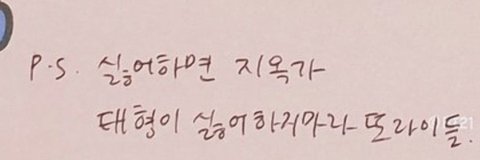 P.S. 싫어하면 지옥가
태형이 싫어하지마라 또라이들.